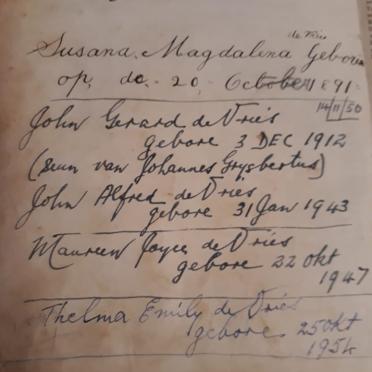 de Vries
Susana Magdalena Gebore
op de 20 October 1891
14/11/50
John Gerard de Vries
gebore 3 DEC 1912
(seun van Johannes Gysbertus)
John Alfred de Vries
gebore 31 Jan 1943
Maureen Joyce de Vries
gebore 22 okt
1947
Thelma Emily de Vries
gebore 25 okt
1954